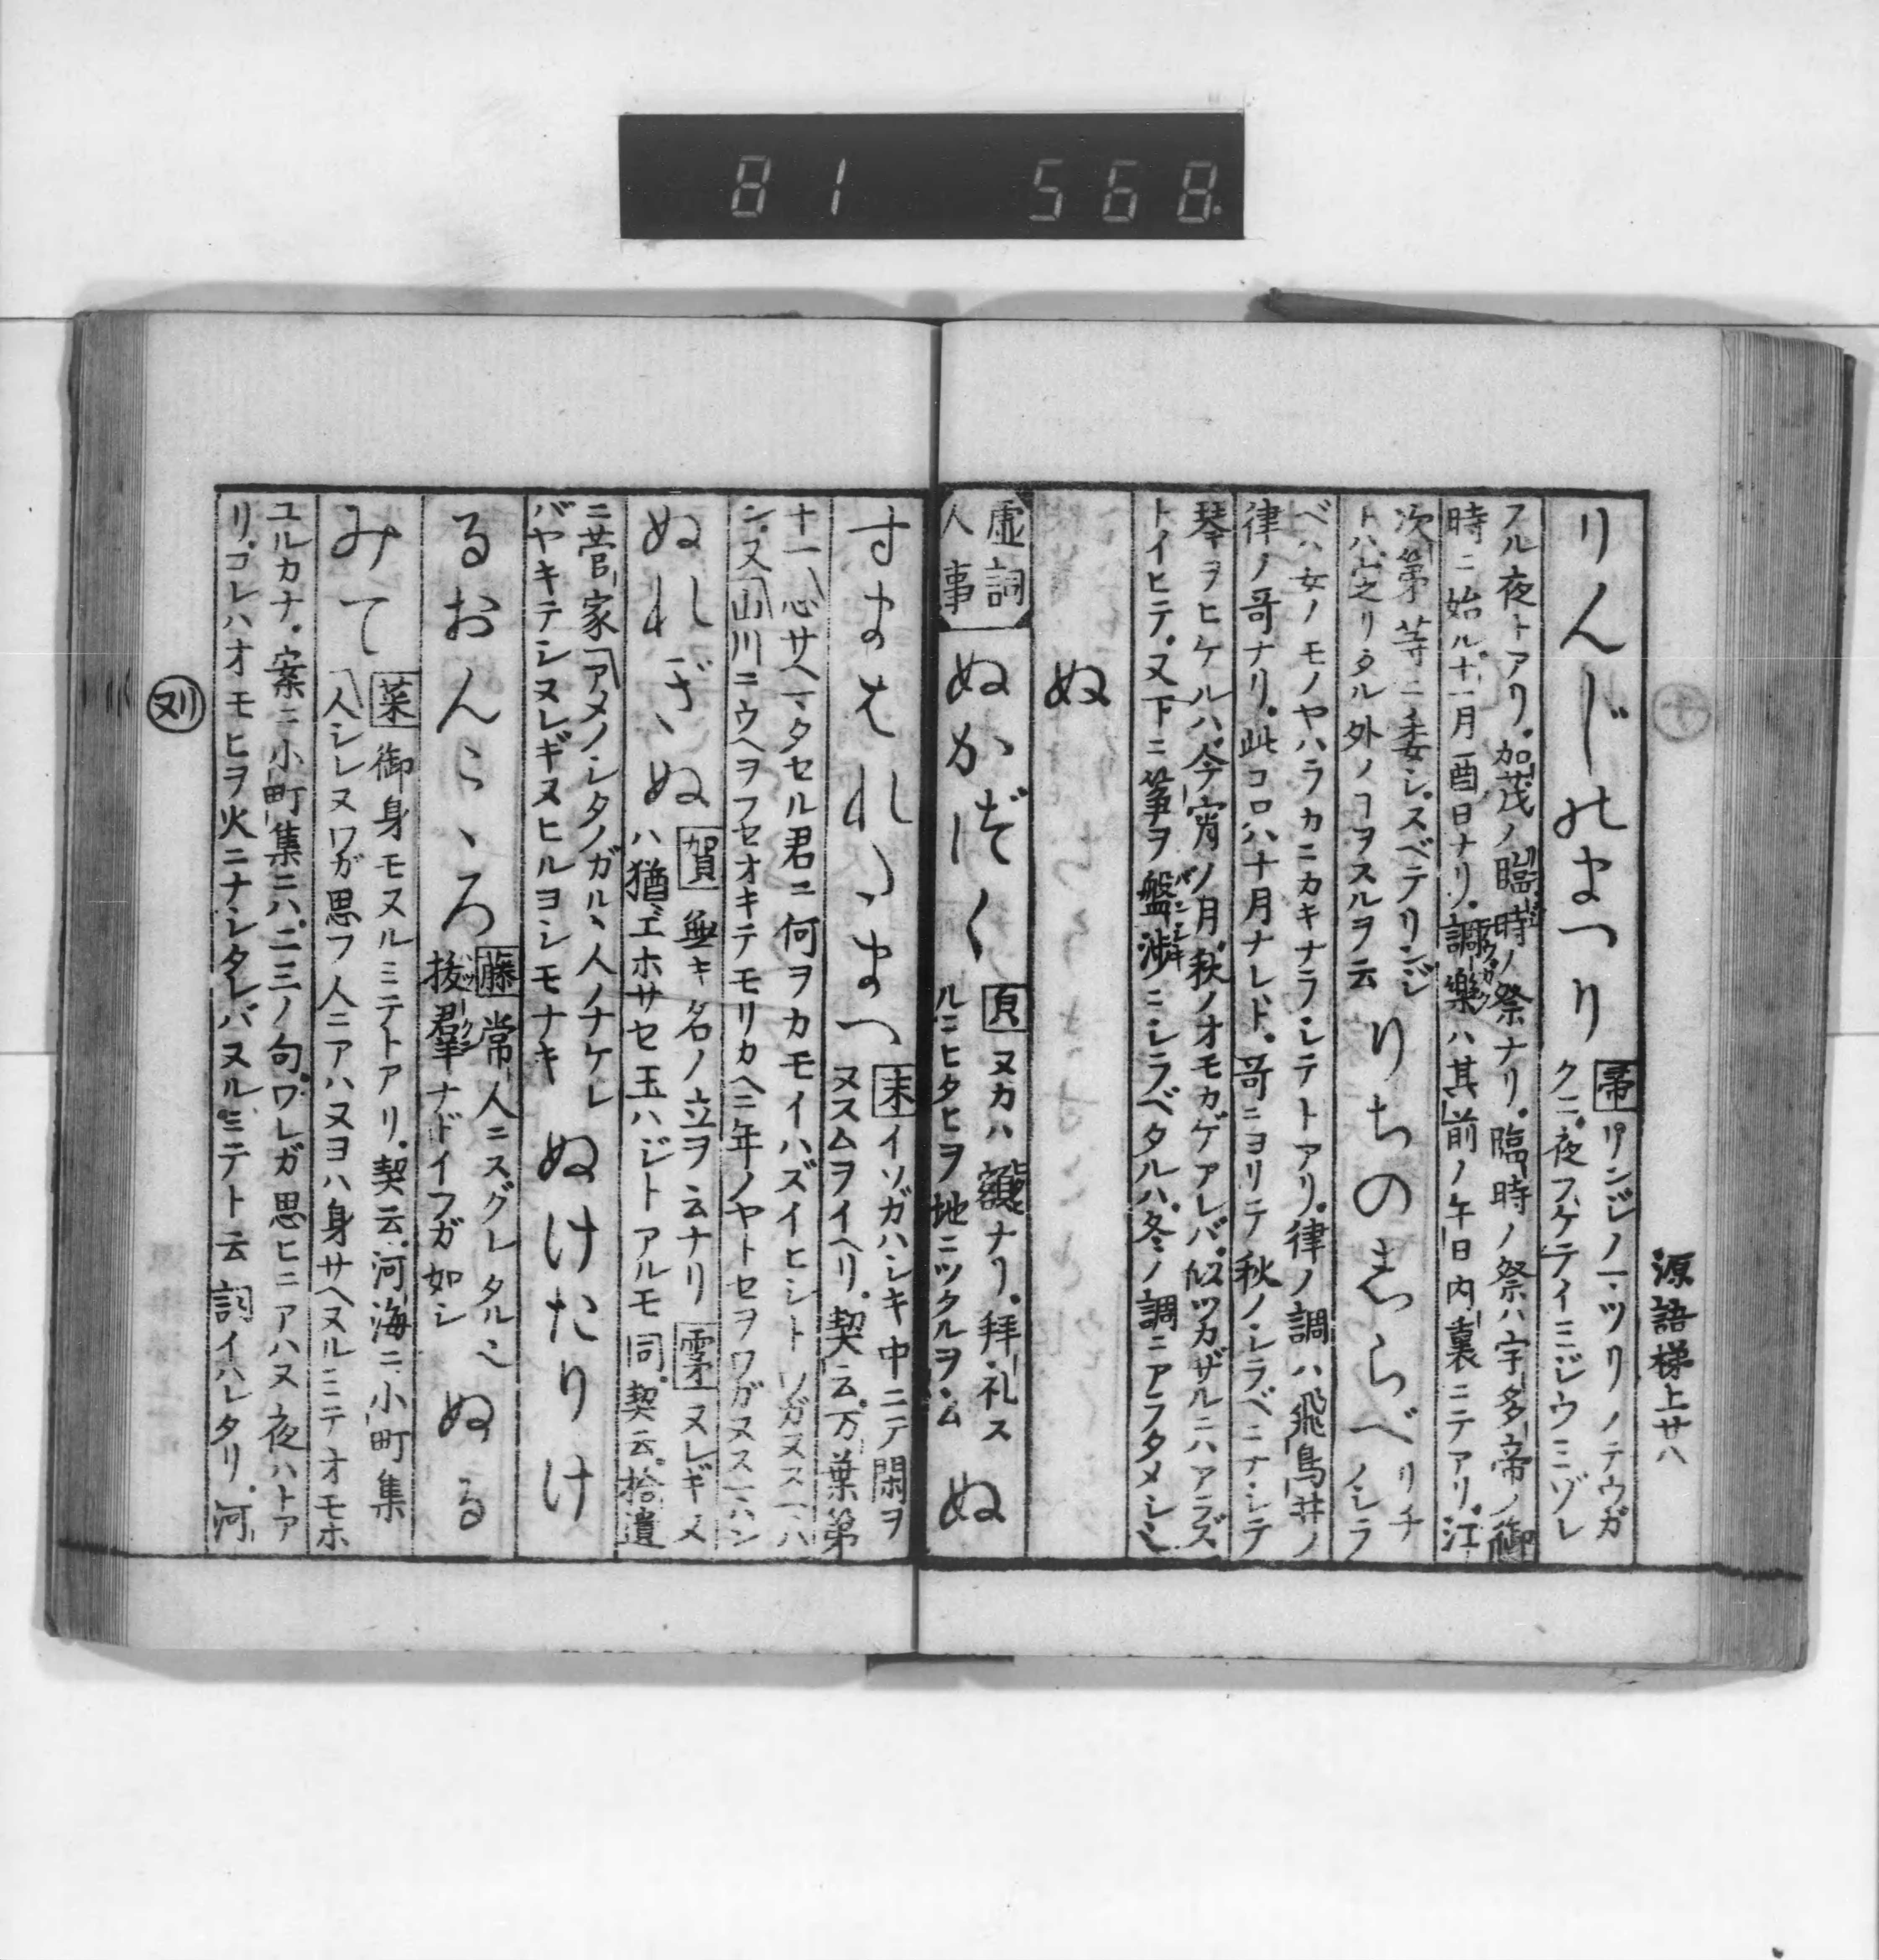 81 568
源語梯上廿八
りんじのまつり
帚 リンジノマツリノテウガ
クニ夜フケテイミジウミゾレ
フル夜トアリ。加茂ノ臨時ノ祭ナリ。臨時ノ祭ハ宇多帝ノ御
時ニ始ル。十一月酉日ナリ。調樂ハ其前ノ午日内裏ニテアリ。江
次第等ニ委シ。スベテリンジ
トハ定リタル外ノヿヲスルヲ云
りちのしらべ
リチ
ノシラ
ベハ女ノモノヤハラカニカキナラシテトアリ。律ノ調ハ飛鳥井ノ
律ノ哥ナリ。此コロハ十月ナレド。哥ニヨリテ秋ノシラベニナシテ
琴ヲヒケルハ。今宵ノ月秋ノオモカゲアレバ。似ツカザルニハアラズ
トイヒテ。又下ニ箏ヲ盤渉ニシラベタルハ。冬ノ調ニアラタメシ也
ぬ
虚詞
人事
ぬかづく
ヌカハ額ナリ。拜礼ス
ルニヒタヒヲ地ニツクルヲ云
ぬ
すまはれたまへ
末 イソガハシキ中ニテ閑ヲ
ヌスムヲイヘリ。契云。万葉第
十一 心サヘマタセル君ニ何ヲカモイハズイヒシトワガヌスマハ
ン。又 山川ニウヘヲフセオキテモリカヘニ年ノヤトセヲワガヌスマハン
ぬれぎぬ
賀 無キ名ノ立ヲ云ナリ 霎 ヌレギヌ
ハ猶エホサセ玉ハジトアルモ同。契云。拾遺
ニ菅家 アメノシタノガルヽ人ノナケレ
バヤキテシヌレギヌヒルヨシモナキ
ぬけたりけ
るおんこゝろ
藤 常人ニスグレタル也
拔羣ナドイフガ如シ
ぬる
みて
菜 御身モヌルミテトアリ。契云。河海ニ小町集
人シレヌワガ思フ人ニアハヌヨハ身サヘヌルミテオモホ
ユルカナ。案ニ小町集ニハ。二三ノ句。ワレガ思ヒニアハヌ夜ハトア
リ。コレハオモヒヲ火ニナシタレバヌルミテト云詞イハレタリ。河
刄